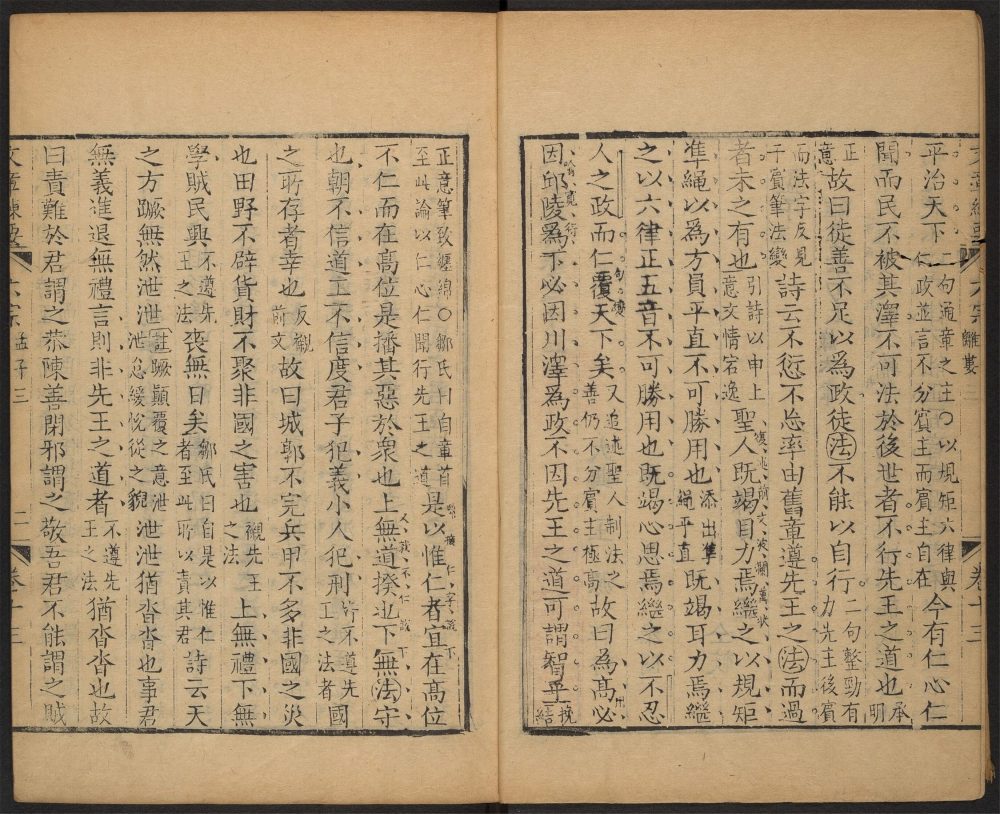 離婁
卷十三
平治天下二句通章之主〇以規矩六律與仁政並言不分賓主而賓主自在今有仁心仁
聞而民不被其澤不可法於後世者不行先王之道也承明
正意故曰徒善不足以為政徒法不能以自行二句整勁有力先主後賓
而法字反見于賓筆法變詩云不愆不忘率由舊章遵先王之法而過
者未之有也引詩以申上意文情宕逸聖人既竭目力焉繼之以規矩
準繩以為方員平直不可勝用也添出準繩平直既竭耳力焉繼
之以六律正五音不可勝用也既竭心思焉繼之以不忍
人之政而仁覆天下矣又追述聖人制法之善仍不分賓主極高故曰為高必
因邱陵為下必因川澤為政不因先王之道可謂智乎挽結
正意筆致纏綿〇鄒氏曰自章首至此論以仁心仁聞行先王之道是以惟仁者宜在高位
不仁而在高位是播其惡於衆也上無道揆也下無法守
也朝不信道工不信度君子犯義小人犯刑皆不遵先王之法者國
之所存者幸也反襯前文故曰城郭不完兵甲不多非國之災
也田野不辟貨財不聚非國之害也襯先王之法上無禮下無
學賊民興不遵先王之法喪無日矣鄒氏曰自是以惟仁者至此所以責其君詩云天
之方蹶無然泄泄註蹶顛覆之意泄泄怠緩悅從之貌泄泄猶沓沓也事君
無義進退無禮言則非先王之道者不遵先王之法猶沓沓也故
曰責難於君謂之恭陳善閉邪謂之敬吾君不能謂之賊
六宗
孟子三
二
卷十三